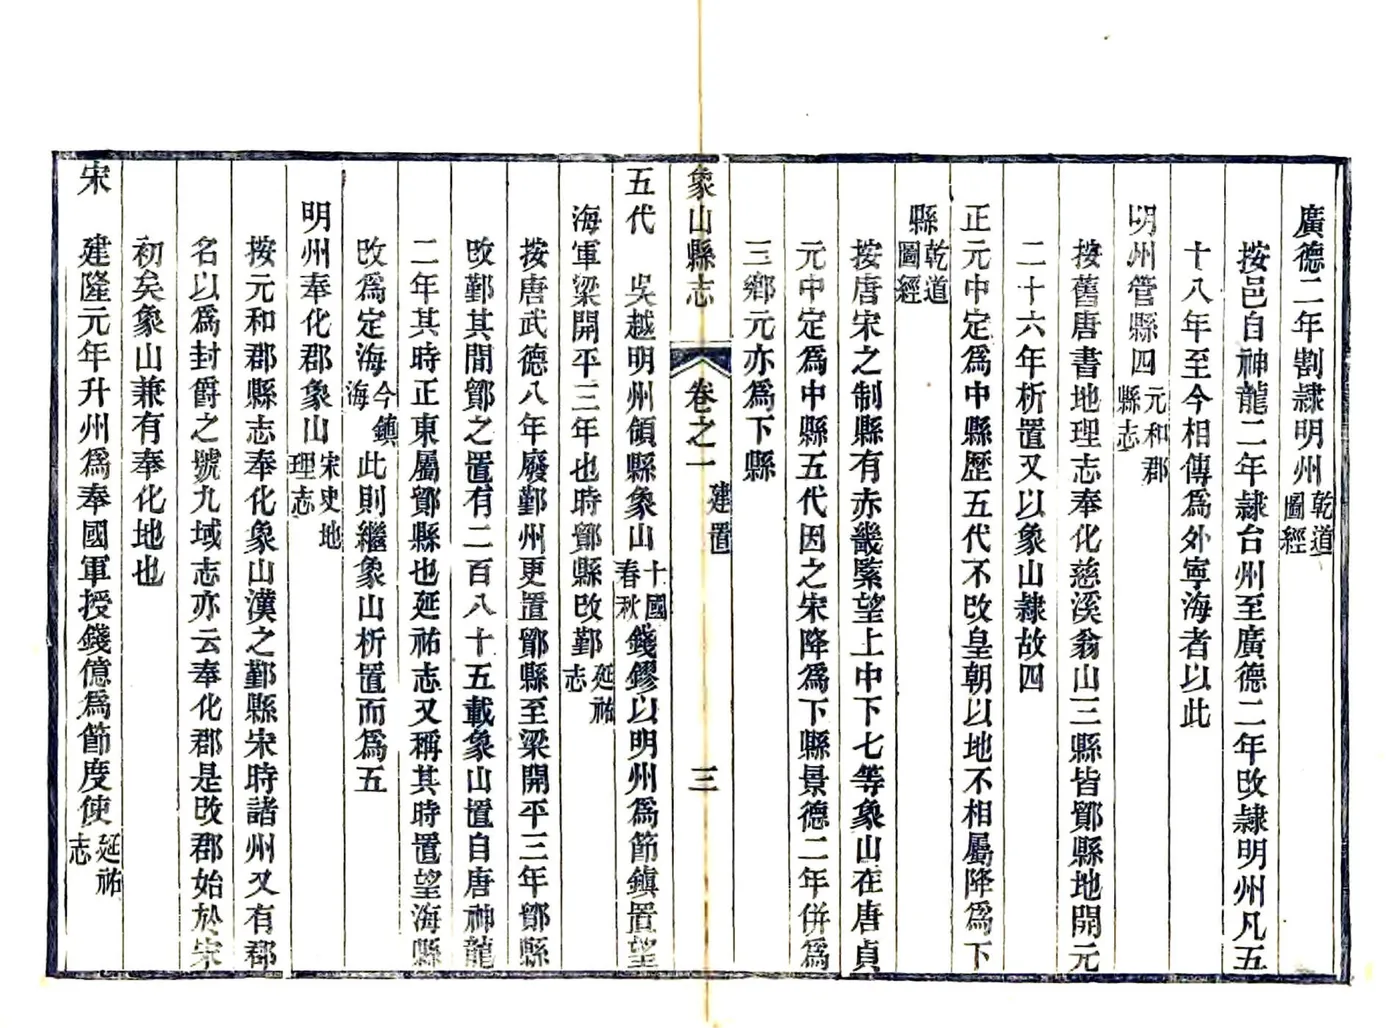 廣德二年割隷明州乾道圖經
按邑自神龍二年隷台州至廣德二年改隷明州凡五
十八年至今相傳爲外寧海者以此
明州管縣四元和郡縣志
按舊唐書地理志奉化慈溪翁山三縣皆鄮縣地開元
二十六年析置又以象山隷故四
正元中定爲中縣歷五代不改皇朝以地不相屬降爲下
縣乾道圖經
按唐宋之制縣有赤畿緊望上中下七等象山在唐貞
元中定爲中縣五代因之宋降爲下縣景德二年併爲
三鄉元亦爲下縣
象山縣志 卷之一 建置 三
五代 吳越明州領縣象山十國春秋錢鏐以明州爲節鎮置望
海軍梁開平三年也時鄮縣改鄞延祐志
按唐武德八年廢鄞州更置鄮縣至梁開平三年鄮縣
改鄞其間鄮之置有二百八十五載象山置自唐神龍
二年其時正東屬鄮縣也延祐志又稱其時置望海縣
改爲定海今鎮海此則繼象山析置而爲五
明州奉化郡象山宋史地理志
按元和郡縣志奉化象山漢之鄞縣宋時諸州又有郡
名以爲封爵之號九域志亦云奉化郡是改郡始於宋
初矣象山兼有奉化地也
宋 建隆元年升州爲奉國軍授錢億爲節度使延祐志